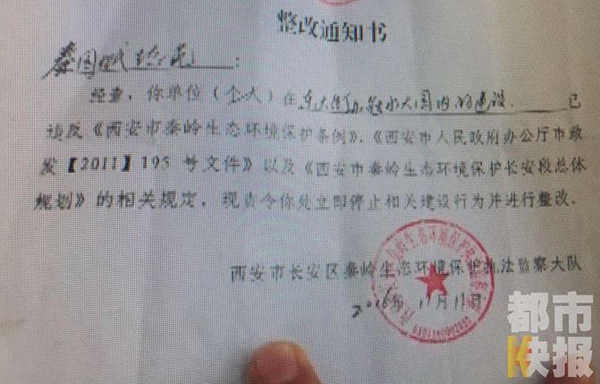 整改通知书
经查，你单位（个人）在东大街办 内的建设，已
违反《西安市秦岭生态环境保护条例》、《西安市人民政府办公厅市政
发【2011】195 号文件》以及《西安市秦岭生态环境保护长安段总体
规划》的相关规定，现责令你处立即停止相关建设行为并进行整改。
西安市长安区秦岭生态环境保护执法监察大队
2016年11月11日
都市
快报